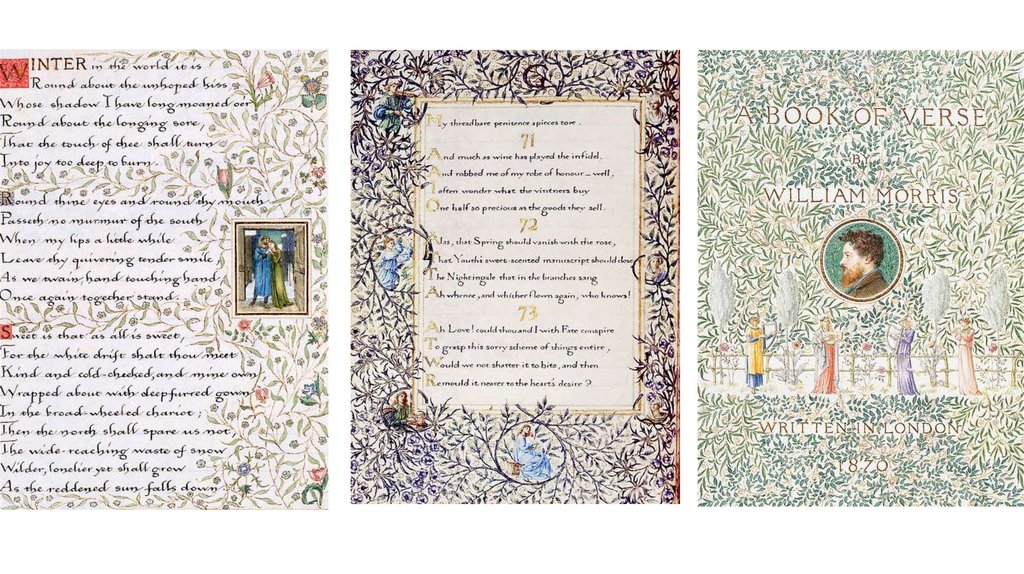 WINTER in the world it is
Round about the unhoped kiss
Whose shadow I have long moaned oer
Round about the longing sore,
That the touch of thee shall turn
Into joy too deep to burn.
Round thine eyes and round thy mouth
Passeth no murmur of the south
When my lips a little while
Leave thy quivering tender smile
As we twain, hand touching hand,
Once again together stand.
Sweet is that as all is sweet,
For the white drift shalt thou meet
Kind and cold-cheeked, and mine own
Wrapped about with deepfurred gown
In the broad-wheeled chariot;
Then the north shall spare us not,
The wide-reaching waste of snow
Wilder, lonelier yet shall grow
As the reddened sun falls down
My threadbare penitence apieces tore.
71
And much as wine has played the infidel,
And robbed me of my robe of honour – well,
I often wonder what the vintners buy
One half so precious as the goods they sell.
72
Alas, that Spring should vanish with the rose,
That Youth's sweet-scented manuscript should close
The Nightingale that in the branches sang
Ah whence, and whither flown again, who knows!
73
Ah Love! could thou and I with Fate conspire
To grasp this sorry scheme of things entire,
Would we not shatter it to bits, and then
Remould it nearer to the heart's desire?
A BOOK OF VERSE
By
WILLIAM MORRIS
WRITTEN IN LONDON
1870